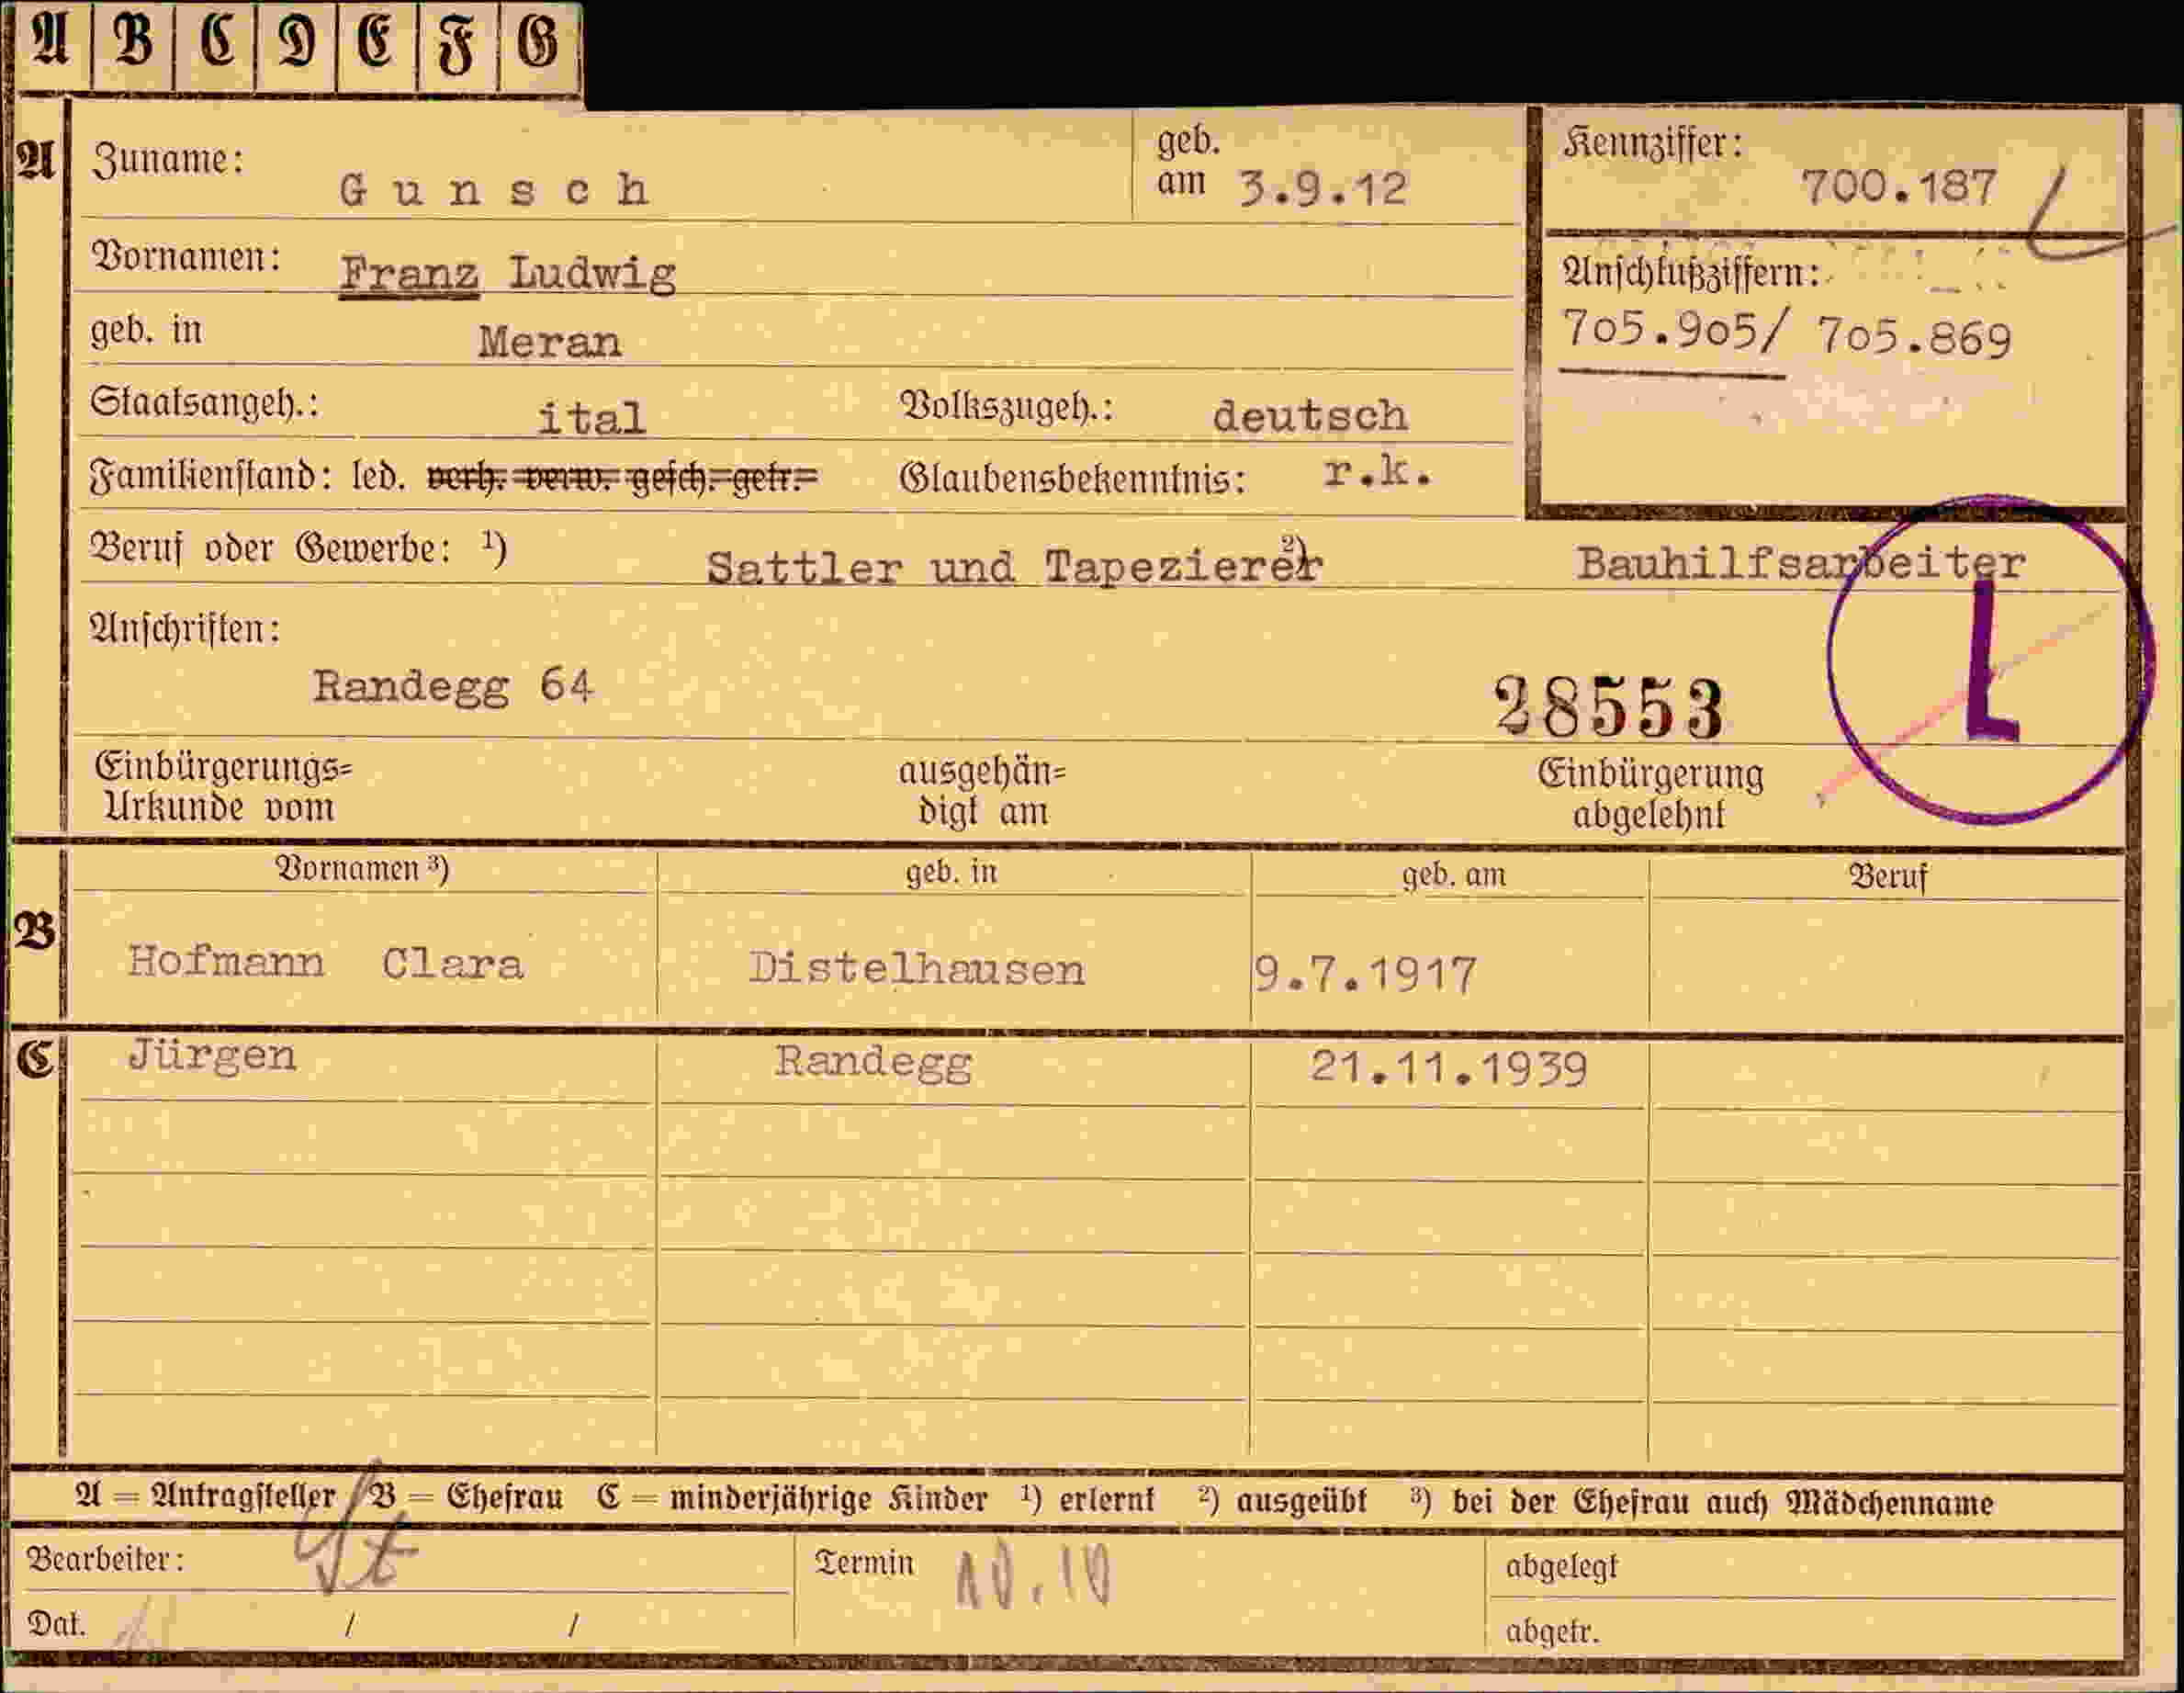 A B C D E F G
A Zuname: Gunsch geb. am 3.9.12 Kennziffer: 700.187
Vornamen: Franz Ludwig Anschlußziffern:
geb. in Meran 705.905/ 705.869
Staatsangeh.: ital Volkszugeh.: deutsch
Familienstand: led. verh. verw. gesch. getr. Glaubensbekenntnis: r.k.
Beruf oder Gewerbe: ¹) Sattler und Tapezierer ²) Bauhilfsarbeiter
Anschriften:
Randegg 64 28553 L
Einbürgerungs= ausgehän= Einbürgerung
Urkunde vom digt am abgelehnt
Vornamen ³) geb. in geb. am Beruf
B Hofmann Clara Distelhausen 9.7.1917
C Jürgen Randegg 21.11.1939
A = Antragsteller B = Ehefrau C = minderjährige Kinder ¹) erlernt ²) ausgeübt ³) bei der Ehefrau auch Mädchenname
Bearbeiter: St Termin 10.10 abgelegt
Dat. / / abgetr.